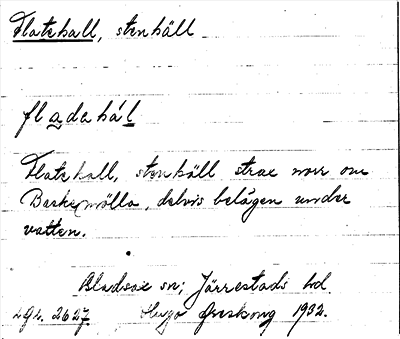 Flatehall, stenhäll
fladahál
Flatehall, stenhäll strax norr om
Baskemölla, delvis belägen under
vatten.
Gladsax sn; Järrestads hd.
2627. Hugo 1932.